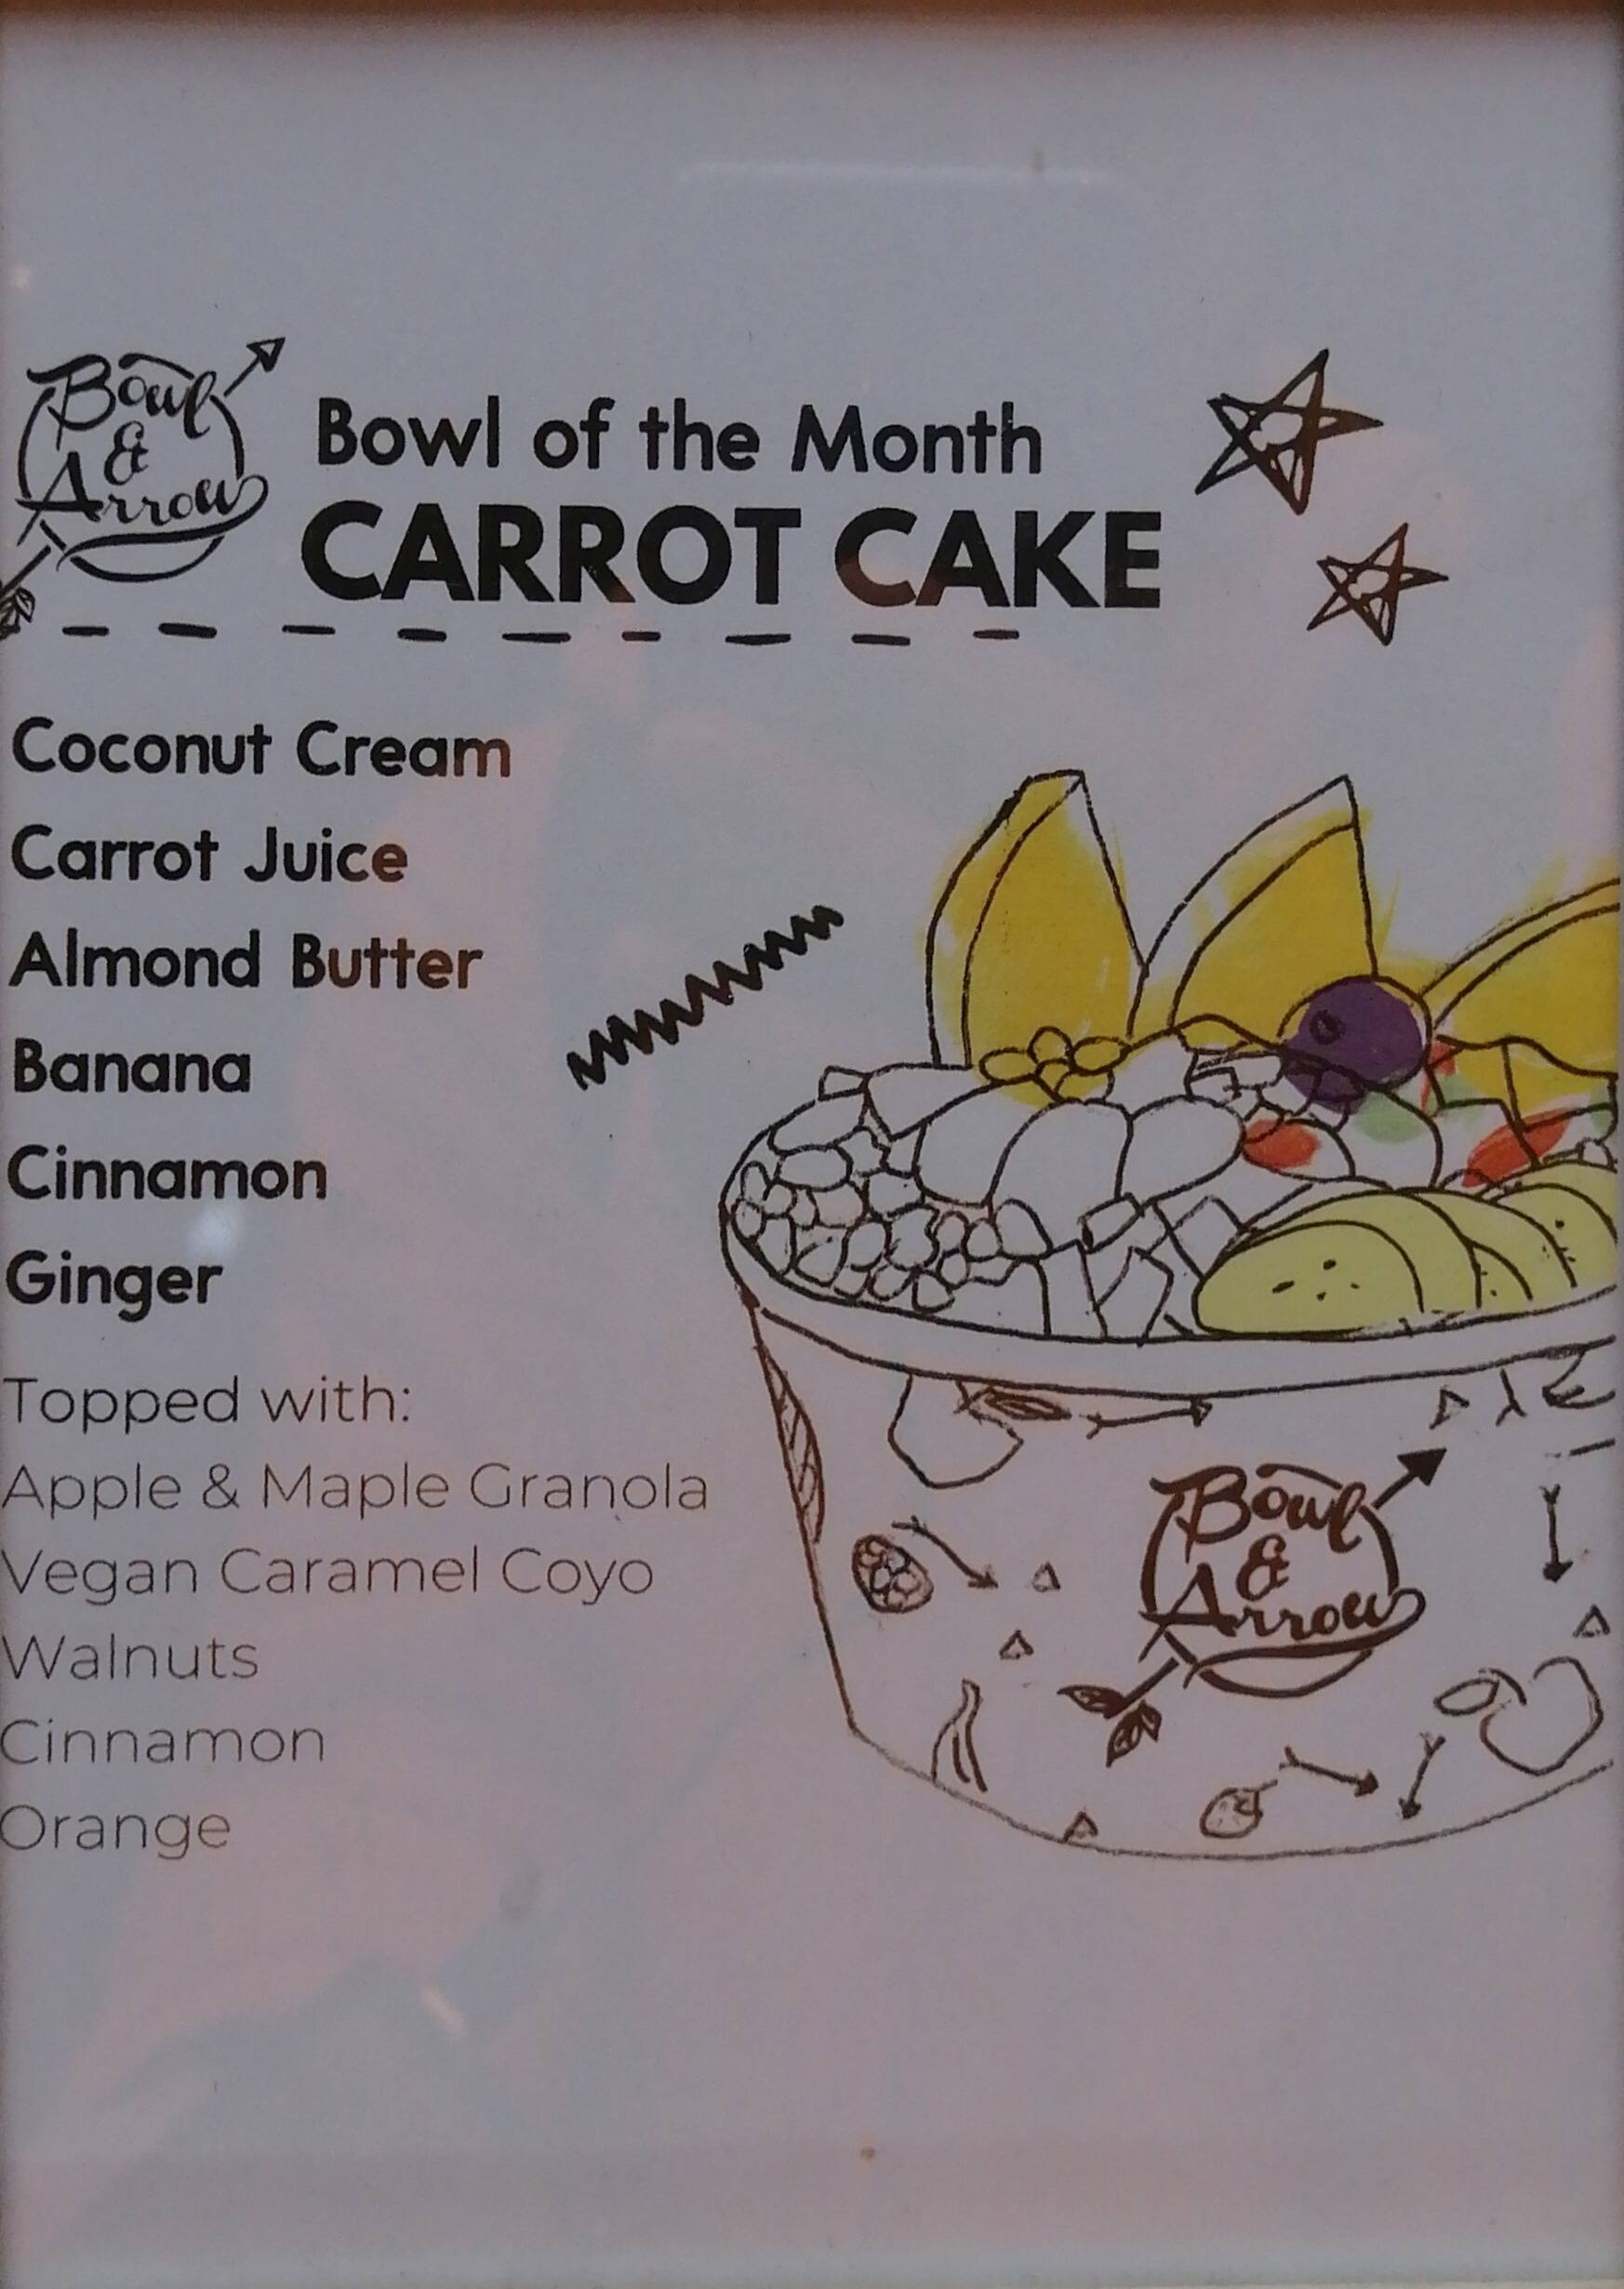 Bowl
&
Arrow
Bowl of the Month
CARROT CAKE
Coconut Cream
Carrot Juice
Almond Butter
Banana
Cinnamon
Ginger
Topped with:
Apple & Maple Granola
Vegan Caramel Coyo
Walnuts
Cinnamon
Orange
Bowl
&
Arrow